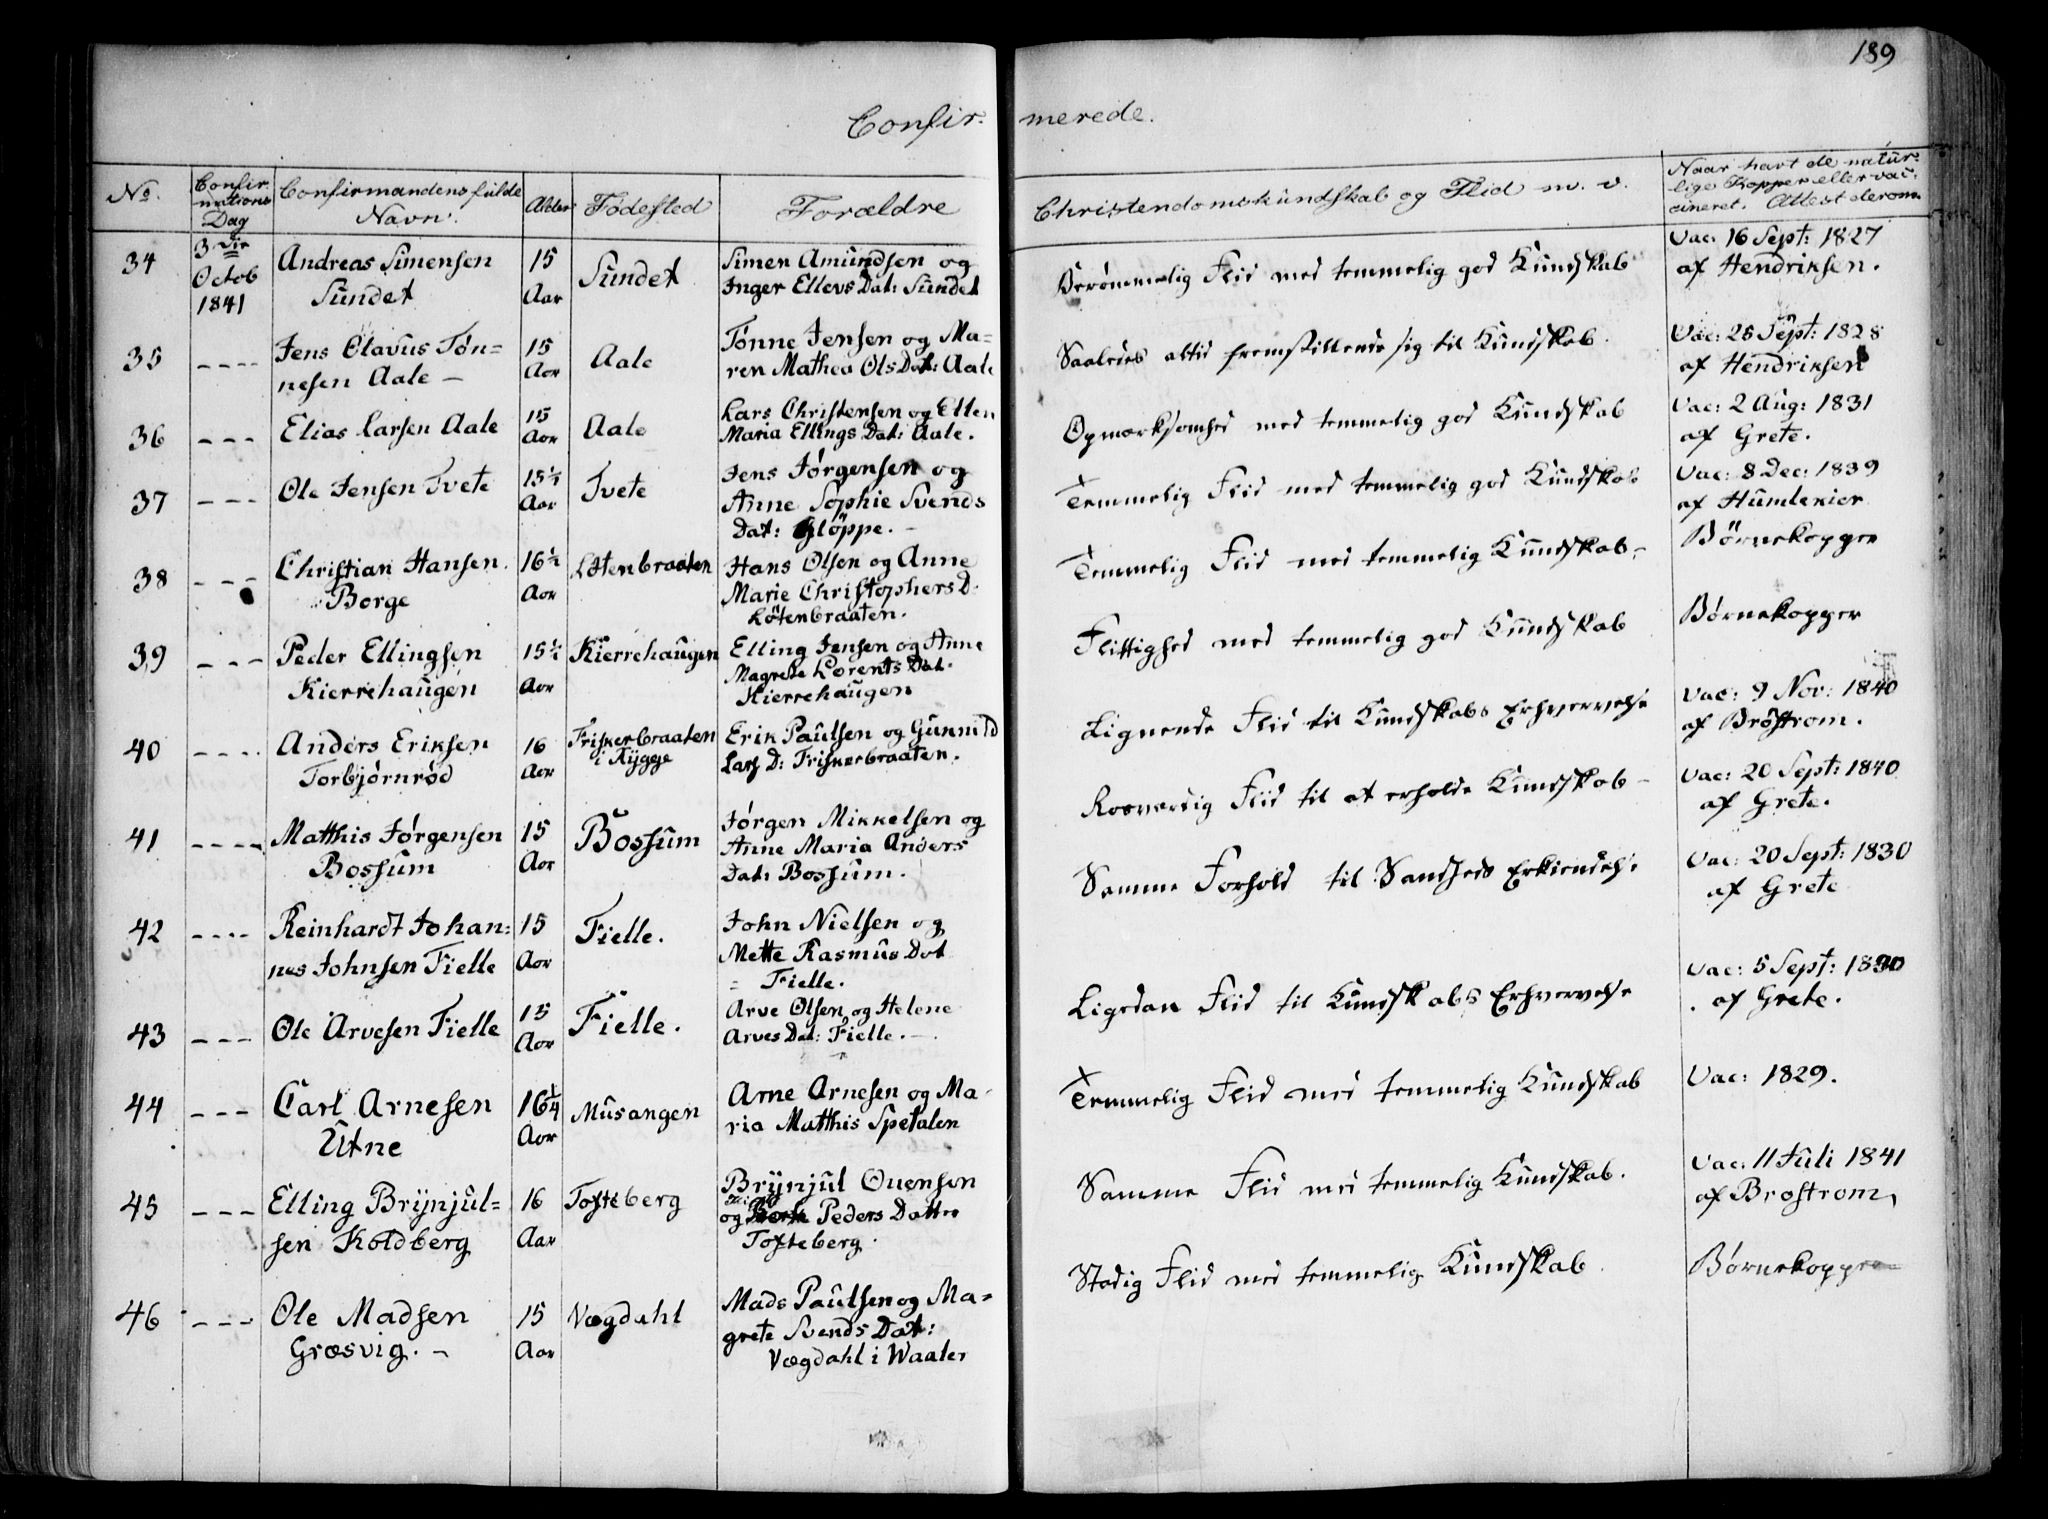 189
Confir- merede.
No. Confir- mations Dag Confirmandens fulde Navn. Alder Fødested Forældre Christendomskundskab og Flid m. v. Naar havt de natur- lige Kopper eller vac- cineret. Attest derom
34 3die Octob 1841 Andreas Simensen 15 Sundet Simen Amundsen og Berømmelig Flid med temmelig god Kundskab Vac: 16 Sept: 1827
Sundet Aar Inger Ellevs Dat: Sundet af Hendriksen.
35 ---- Jens Olavus Tøn= 15 Aale Tønne Jensen og Ma- Saaledes altid fremstillende sig til Kundskab. Vac: 28 Sept: 1828
nesen Aale — Aar ren Mathea Ols Dat: Aale af Hendriksen
36 --- Elias Larsen Aale 15 Aale Lars Christensen og Ellen Opmærksomhed med temmelig god Kundskab Vac: 2 Aug: 1831
Aar Maria Ellings Dat: Aale. af Grete.
37 --- Ole Jensen Tvete 15½ Tvete Jens Jørgensen og Temmelig Flid med temmelig god Kundskab Vac: 8 Dec: 1839
Aar Anne Sophie Svends af Humlekier
Dat: Gløppe. —
38 --- Christian Hansen. 16½ Løtenbraaten Hans Olsen og Anne Temmelig Flid med temmelig Kundskab- Børnekopper
Borge Aar Marie Christophers D:
Løtenbraaten.
39 --- Peder Ellingsen 15½ Kierrehaugen Elling Jensen og Anne Flittighed med temmelig god Kundskab Børnekopper
Kierrehaugen Aar Magrete Lorents Dat.
Kierrehaugen
40 ---- Anders Eriksen 16 Friskerbraaten Erik Paulsen og Gunnild Lignende Flid til Kundskabs Erhvervelse Vac: 9 Nov: 1840
Torbjørnrød Aar i Rygge Lars D: Friskerbraaten. af Brøstrom.
41 ---- Matthis Jørgensen 15 Bossum Jørgen Mikkelsen og Rosværdig Flid til at erholde Kundskab- Vac: 20 Sept: 1840
Bossum Aar Anne Maria Anders af Grete.
Dat: Bossum.
42 ---- Reinhardt Johan= 15 Fielle. John Nielsen og Samme Forhold til Sandheds Erkiendelse Vac: 20 Sept: 1830
nes Johnsen Fielle Aar Mette Rasmus Dat af Grete
Fielle.
43 --- Ole Arvesen Fielle 15 Fielle. Arve Olsen og Helene Ligedan Flid til Kundskabs Erhvervelse Vac: 5 Sept: 1830
Aar Arves Dat: Fielle. — af Grete.
44 --- Carl Arnesen 16¼ Musangen Arne Arnesen og Ma- Temmelig Flid med temmelig Kundskab Vac: 1829.
Utne Aar ria Matthis Spetalen
45 --- Elling Brynjul= 16 Tofteberg Brynjul Ouensen Samme Flid med temmelig Kundskab. Vac: 11 Juli 1841
sen Koldberg Aar og Peders Datter af Brostrom,
Tofteberg.
46 --- Ole Madsen 15 Vægdahl Mads Paulsen og Ma= Stadig Flid med temmelig Kundskab. Børnekopper
Græsvig. — Aar grete Svends Dat:
Vægdahl i Waaler